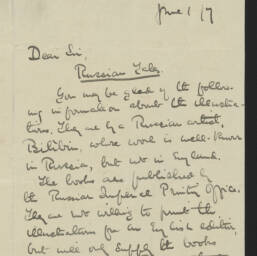 June 1 /7
Dear Sir,
Russian Tales
You may be glad of the follow-
ing information about the illustra-
tions. They are by a Russian artist,
Bilibin, whose work is well-known
in Russia, but not in England.
The books are published by
the Russian Imperial Printing Office.
They are not willing to print the
illustrations for an English editor,
but will only supply the books